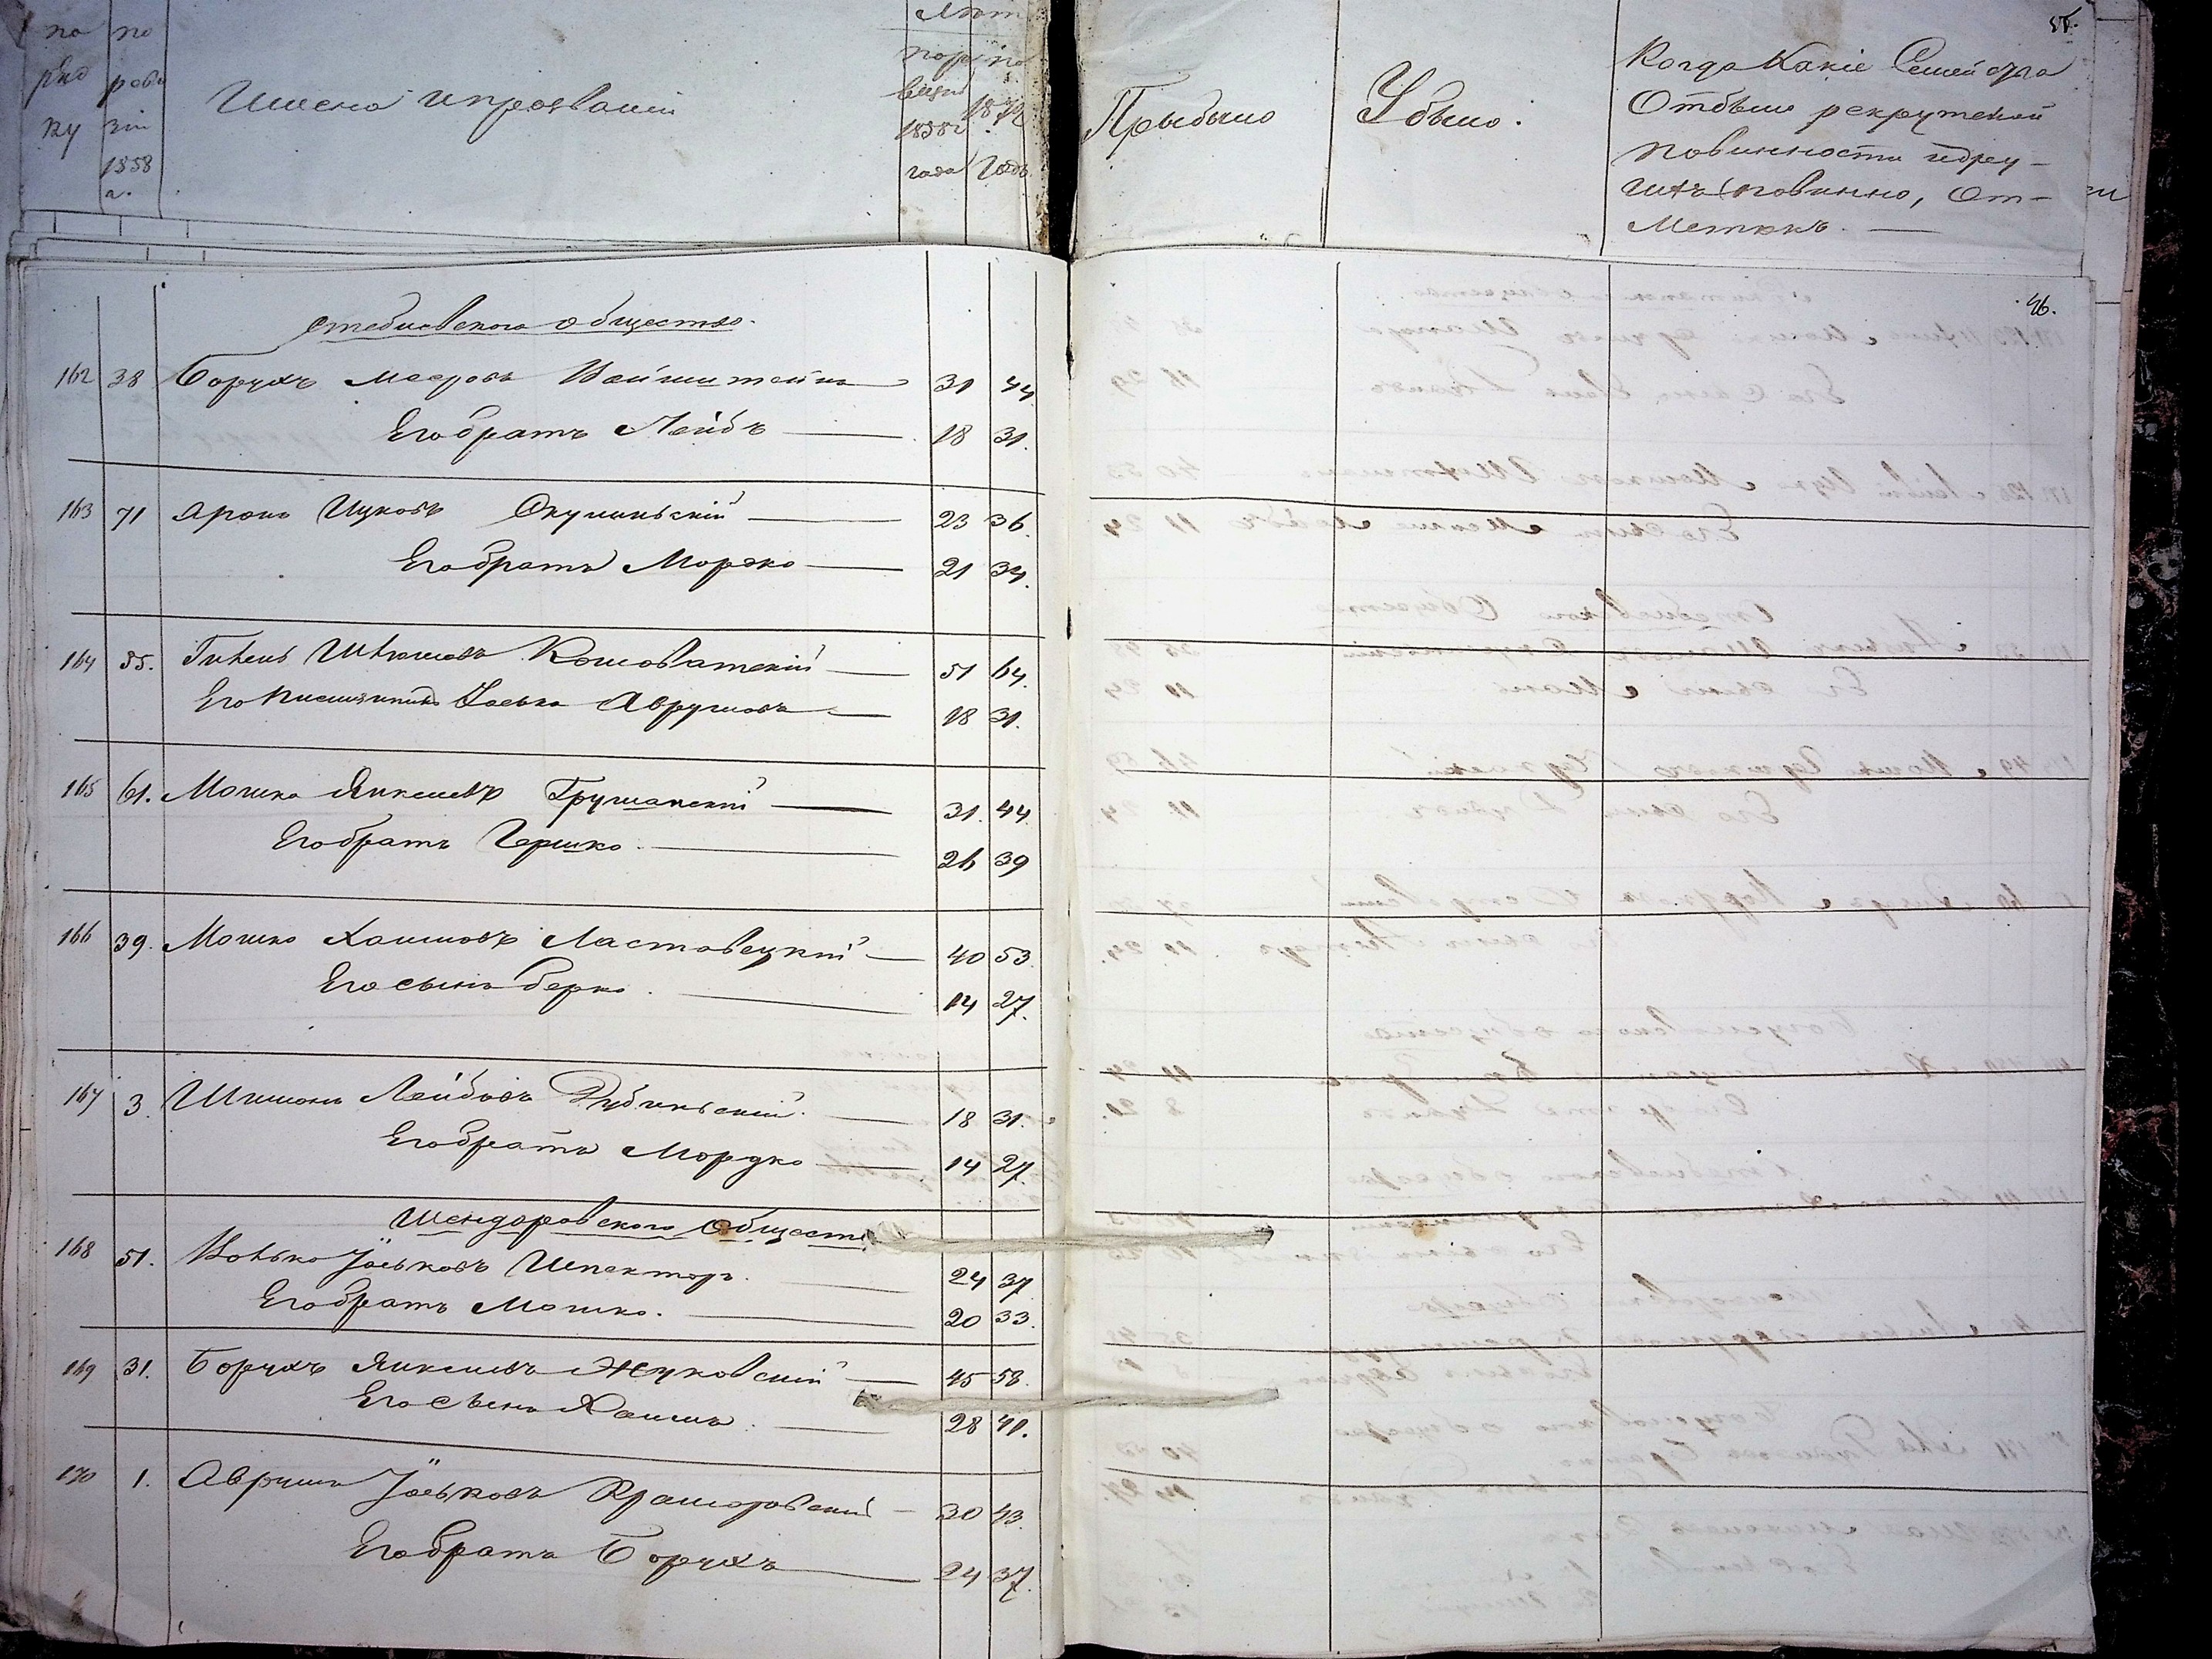 по
ряд
ку
по
реви
зіи
1858
г.
Имена и прозваніи
Лѣт
по ре
визіи
1858
года
по
1871
Годъ
Прыбыло
Убыло.
Когда Какіе Семейства
Отбыли рекрутской
повинности
повинно, От-
Меткъ.
46.
Стеблевского общества.
162 38 Борухъ Мееровъ Вайнштейнъ 31 44
Его братъ Лейбъ 18 31.
163 71 Аронъ Ицковъ Окуниньскій 23 36.
Его братъ Мордко 21 34.
164 55. Шлиомовъ Кошоватскій 51 64.
Его племянникъ Іосько Аврумовъ 18 31.
165 61. Мошко Янкелевъ Грушанскій 31. 44
Его братъ Гершко. 26 39
166 39. Мошко Хаимовъ Ластовецкій 40 53
Его сынъ Берко. 14 27.
167 3. Шимонъ Лейбовъ Дубиньскій. 18 31.
Его братъ Мордко 14 27.
Шендоровского Общест
168 51. Волько Іоськовъ Шпекторъ. 24 37
Его братъ Мошко. 20 33.
169 31. Борухъ Янкелевъ Жуковскій 45 58.
Его сынъ Хаимъ. 28 41.
170 1. Аврумъ Іоськовъ 30 43.
Его братъ Борухъ 24 37.